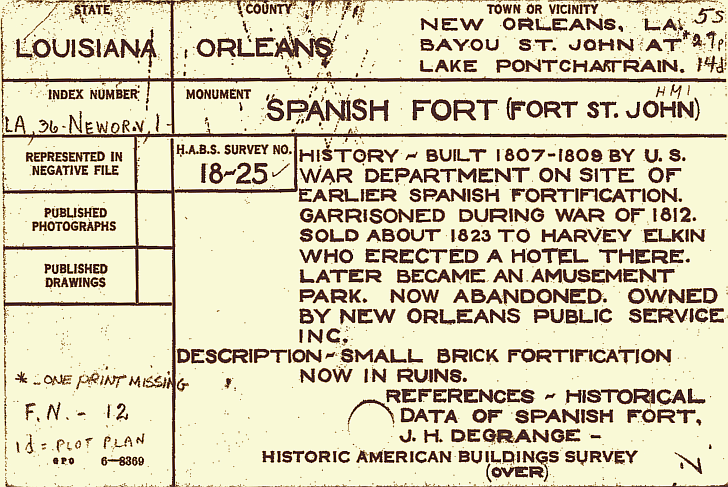 STATE
LOUISIANA
COUNTY
ORLEANS
TOWN OR VICINITY
NEW ORLEANS, LA.
BAYOU ST. JOHN AT
LAKE PONTCHARTRAIN.
5S
*29p
14d
INDEX NUMBER
LA, 36-NEWOR.V, 1-
MONUMENT
HMI
SPANISH FORT (FORT ST. JOHN)
REPRESENTED IN
NEGATIVE FILE
PUBLISHED
PHOTOGRAPHS
PUBLISHED
DRAWINGS
H.A.B.S. SURVEY NO.
18~25 ✓
HISTORY ~ BUILT 1807-1809 BY U. S.
WAR DEPARTMENT ON SITE OF
EARLIER SPANISH FORTIFICATION.
GARRISONED DURING WAR OF 1812.
SOLD ABOUT 1823 TO HARVEY ELKIN
WHO ERECTED A HOTEL THERE.
LATER BECAME AN AMUSEMENT
PARK. NOW ABANDONED. OWNED
BY NEW ORLEANS PUBLIC SERVICE
INC.
DESCRIPTION ~ SMALL BRICK FORTIFICATION
NOW IN RUINS.
REFERENCES ~ HISTORICAL
DATA OF SPANISH FORT,
J. H. DEGRANGE -
HISTORIC AMERICAN BUILDINGS SURVEY
(OVER)
* - ONE PRINT MISSING
F. N. - 12
1d = PLOT PLAN
GPO 6-8369